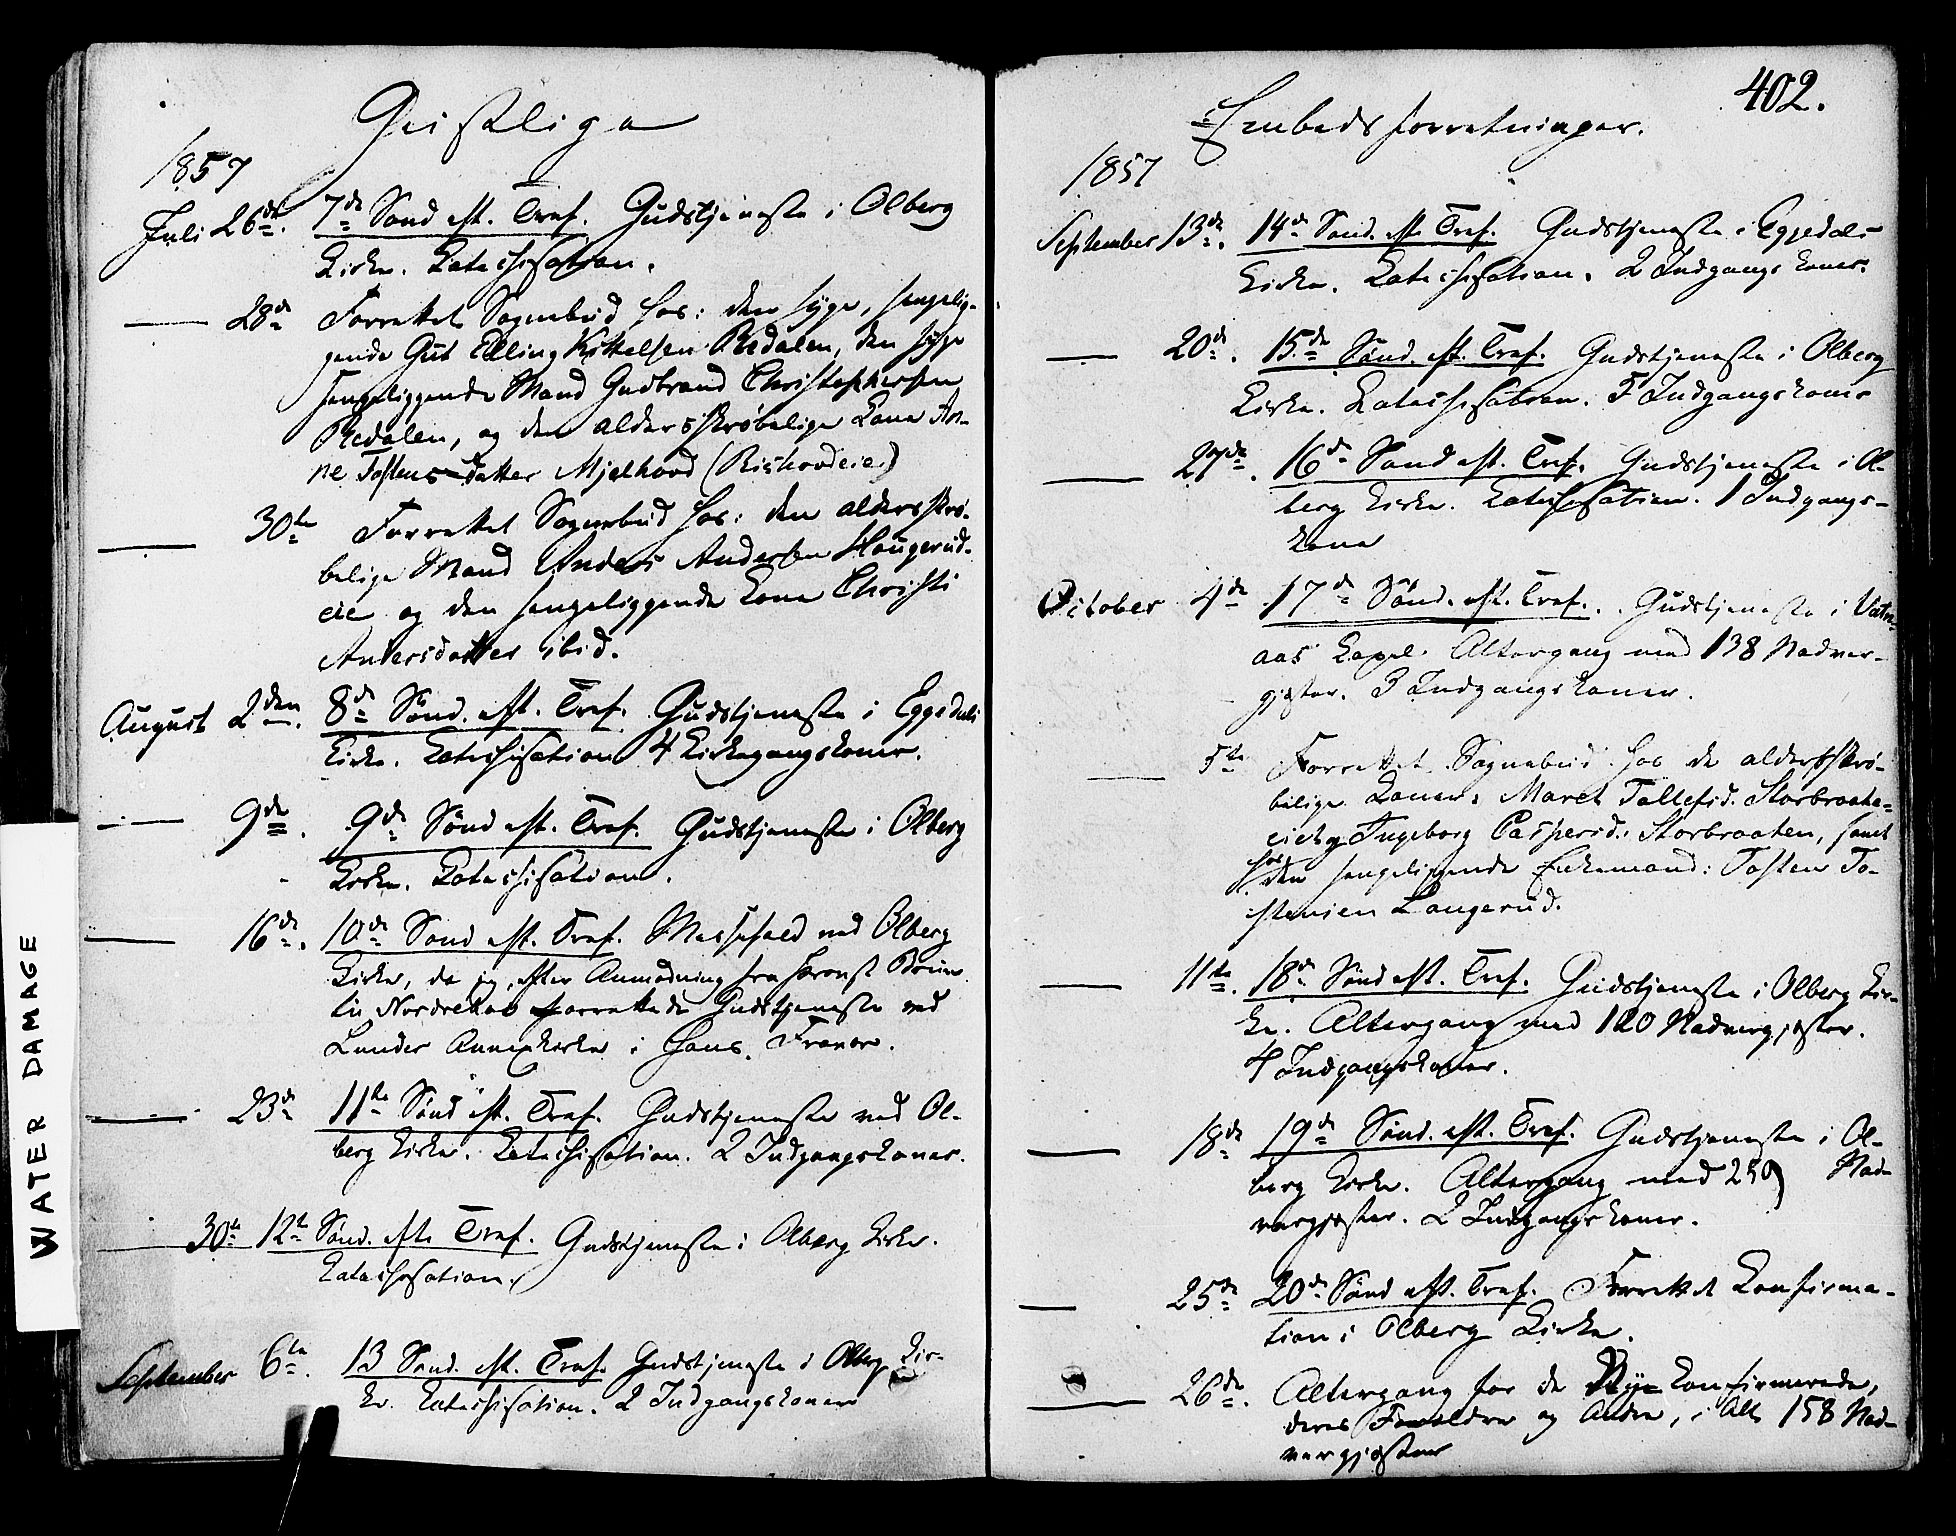 Geistlige
1857
Juli 26de. 7de Sønd eft. Tref. Gudstjeneste i Olberg
Kirke. Katechisation.
28de Forrettet Sognebud hos: den syge, sengelig-
gende Gut Elling Kittelsen Redalen, den syge
sengeliggende Mand Gudbrand Christophersen
Redalen, og den aldersskrøbelige Kone An-
ne Tostensdatter Mjelhovd (Rishovdeie)
30te Forrettet Sognebud hos: den aldersskrø-
belige Mand Anders Andersen Haugerud-
eie og den sengeliggende Kone Christi
Andersdatter ibid.
August 2den. 8de Sønd. eft. Tref. Gudstjeneste i Eggedals
Kirke. Katechisation 4 Kirkegangskoner.
9de. 9de Sønd eft. Tref. Gudstjeneste i Olberg
Kirke. Katechisation.
16de. 10de Sønd eft. Tref. Messefald ved Olberg
Kirke, da jeg, efter Anmodning fra Provst
til Norderhov forrettede Gudstjeneste ved
Lunder Annexkirke i hans Fravær.
23de 11te Sønd eft. Tref. Gudstjeneste ved Ol-
berg Kirke. Katechisation. 2 Indgangskoner.
30te 12te Sønd. efte Tref. Gudstjeneste i Olberg Kirke.
Katechisation.
September 6te. 13 Sønd. eft. Tref. Gudstjeneste i Olberg Kir-
ke. Katechisation. 2 Indgangskoner
402.
Embedsforretninger.
1857
September 13de. 14de Sønd. eft. Tref. Gudstjeneste i Eggedals
Kirke. Katechisation. 2 Indgangskoner.
20de. 15de Sønd. eft. Tref. Gudstjeneste i Olberg
Kirke. Katechisation. 5 Indgangskoner
27de. 16de Sønd eft. Tref. Gudstjeneste i Ol-
berg Kirke. Katechisation. 1 Indgangs-
kone
October 4de 17de Sønd. eft. Tref. Gudstjeneste i Vatn-
aas Kapel. Altergang med 138 Nadver-
gjester. 3 Indgangskoner.
5te Forrettet Sognebud hos de aldersskrø-
belige Koner: Maret Tollefsd. Storbraaten-
eie og Ingeborg Caspersd. Storbraaten, samt
hos den sengeliggende Enkemand: Tosten To-
stensen Langerud.
11te. 18de Sønd eft. Tref. Gudstjeneste i Olberg Kir-
ke. Altergang med 120 Nadvergjester.
4 Indgangskoner.
18de 19de Sønd. eft. Tref. Gudstjeneste i Ol-
berg Kirke. Altergang med 259 Nad-
vergjester. 2 Indgangskoner.
25de 20de Sønd eft. Tref. Forrettet Konfirma-
tion i Olberg Kirke.
26de. Altergang for de Ny-konfirmerede,
deres Forældre og Andre, i Alt 158 Nad-
vergjester
WATER DAMAGE